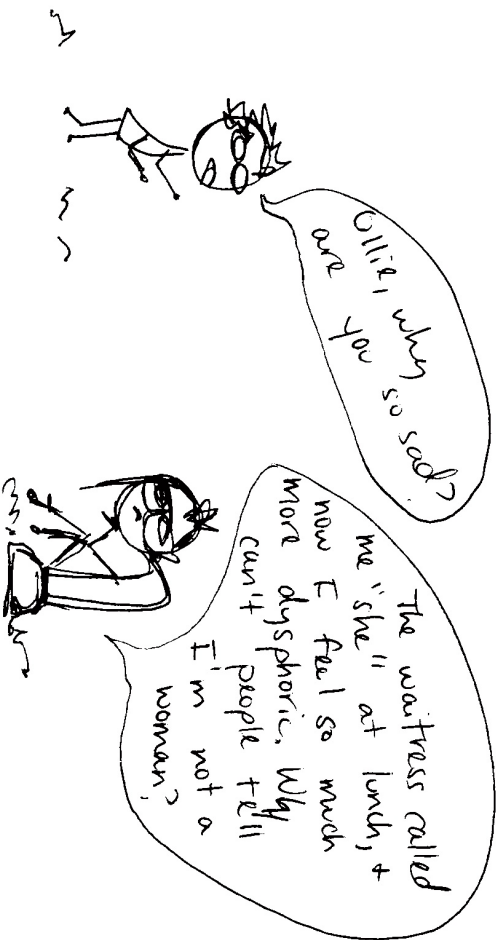 Ollie, why
are you so sad?
The waitress called
me "she" at lunch, +
now I feel so much
more dysphoric. Why
can't people tell
I'm not a
woman?